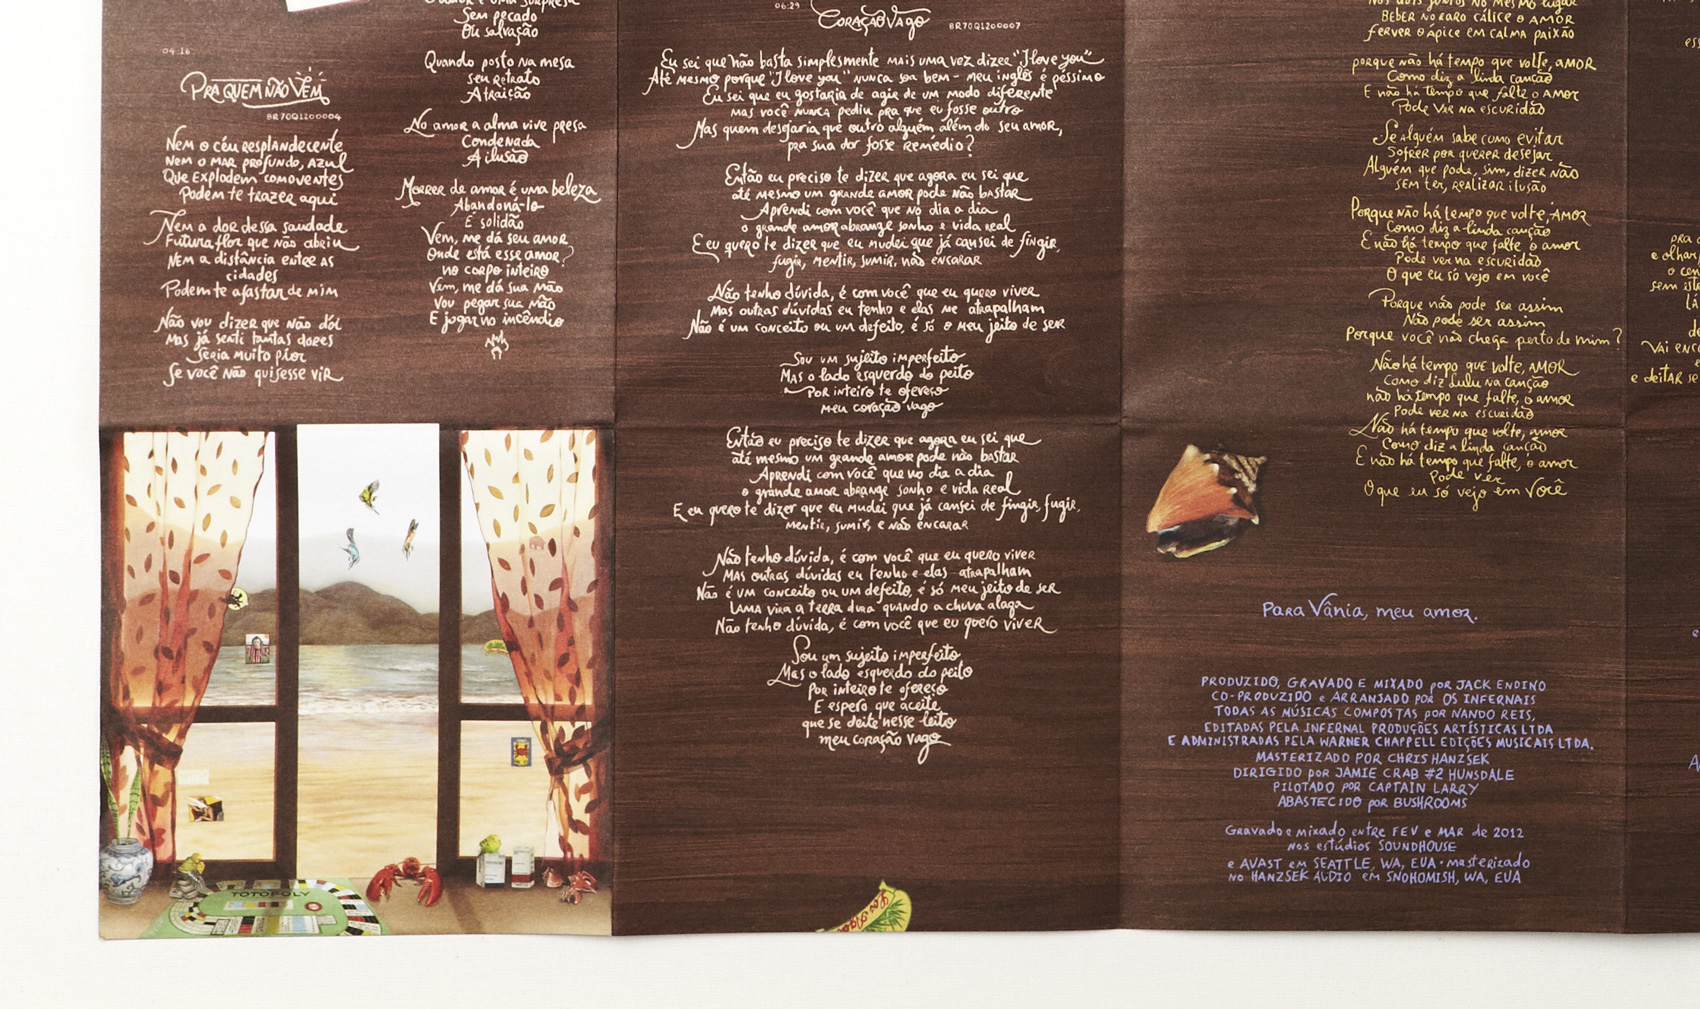 04:16
PRA QUEM NÃO VÊM
BR70Q1200004
Nem o céu resplandecente
Nem o mar profundo, azul
Que explodem comoventes
Podem te trazer aqui
Nem a dor dessa saudade
Futura flor que não abriu
Nem a distância entre as
cidades
Podem te afastar de mim
Não vou dizer que não dói
Mas já senti tantas dores
Seria muito pior
Se você não quisesse vir
surpresa
Sem pecado
Ou salvação
Quando posto na mesa
seu retrato
A traição
No amor a alma vive presa
Condenada
A ilusão
Morrer de amor é uma beleza
Abandoná-lo
É solidão
Vem, me dá seu amor
Onde está esse amor?
no corpo inteiro
Vem, me dá sua mão
Vou pegar sua mão
E jogar no incêndio
TOTOPOLY
06:29
CORAÇÃO VAGO
BR70Q1200007
Eu sei que não basta simplesmente mais uma vez dizer "I love you"
Até mesmo porque "I love you" nunca soa bem - meu inglês é péssimo
Eu sei que eu gostaria de agir de um modo diferente
mas você nunca pediu pra que eu fosse outro
Mas quem desejaria que outro alguém além do seu amor,
pra sua dor fosse remédio?
Então eu preciso te dizer que agora eu sei que
até mesmo um grande amor pode não bastar
Aprendi com você que no dia a dia
o grande amor abrange sonho e vida real
E eu quero te dizer que eu mudei que já cansei de fingir,
fugir, mentir, sumir, não encarar
Não tenho dúvida, é com você que eu quero viver
Mas outras dúvidas eu tenho e elas me atrapalham
Não é um conceito ou um defeito, é só o meu jeito de ser
Sou um sujeito imperfeito
Mas o lado esquerdo do peito
Por inteiro te ofereço
meu coração vago
Então eu preciso te dizer que agora eu sei que
até mesmo um grande amor pode não bastar
Aprendi com você que no dia a dia
o grande amor abrange sonho e vida real
E eu quero te dizer que eu mudei que já cansei de fingir, fugir,
mentir, sumir, e não encarar
Não tenho dúvida, é com você que eu quero viver
Mas outras dúvidas eu tenho e elas atrapalham
Não é um conceito ou um defeito, é só meu jeito de ser
Lama vira a terra dura quando a chuva alaga
Não tenho dúvida, é com você que eu quero viver
Sou um sujeito imperfeito
Mas o lado esquerdo do peito
Por inteiro te ofereço
E espero que aceite,
que se deite nesse leito
meu coração vago
Nos dois juntos no mesmo lugar
Beber no raro cálice o amor
Ferver o ápice em calma paixão
Porque não há tempo que volte, amor
Como diz a linda canção
E não há tempo que falte o amor
Pode ver na escuridão
Se alguém sabe como evitar
Sofrer por querer desejar
Alguém que pode, sim, dizer não
Sem ter, realizar ilusão
Porque não há tempo que volte, amor
Como diz a linda canção
E não há tempo que falte o amor
Pode ver na escuridão
O que eu só vejo em você
Porque não pode ser assim
Não pode ser assim
Porque você não chega perto de mim?
Não há tempo que volte, amor
Como diz Lulu na canção
não há tempo que falte, o amor
Pode ver na escuridão
Não há tempo que volte, amor
Como diz a linda canção
E não há tempo que falte, o amor
Pode ver
O que eu só vejo em você
Para Vânia, meu amor.
PRODUZIDO, GRAVADO E MIXADO por JACK ENDINO
CO-PRODUZIDO e ARRANJADO por OS INFERNAIS
TODAS AS MÚSICAS COMPOSTAS por NANDO REIS,
EDITADAS PELA INFERNAL PRODUÇÕES ARTÍSTICAS LTDA
E ADMINISTRADAS PELA WARNER CHAPPELL EDIÇÕES MUSICAIS LTDA.
MASTERIZADO POR CHRIS HANZSEK
DIRIGIDO por JAMIE CRAB #2 HUNSDALE
PILOTADO por CAPTAIN LARRY
ABASTECIDO por BUSHROOMS
Gravado e mixado entre FEV e MAR de 2012
nos estúdios SOUNDHOUSE
e AVAST em SEATTLE, WA, EUA. masterizado
no HANZSEK AUDIO em SNOHOMISH, WA, EUA
pra
e olhar
sem
Vai
e deitar se